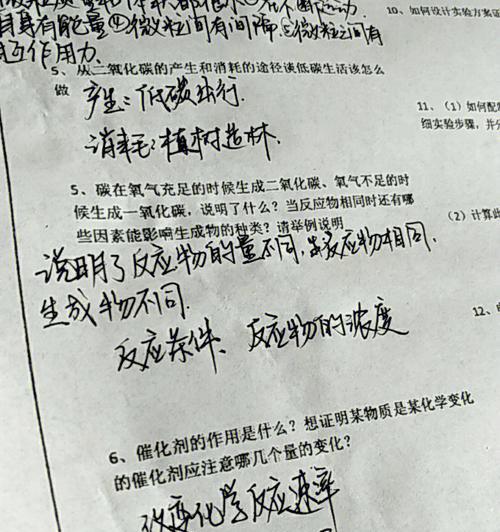 目具有能量④微粒间有间隔⑤微粒之间有
互作用力
10、如何设计实验方案证
5、从二氧化碳的产生和消耗的途径谈低碳生活该怎么
做 产生：低碳出行.
消耗：植树造林.
11、（1）如何配
细实验步骤，并分
5、碳在氧气充足的时候生成二氧化碳、氧气不足的时
候生成一氧化碳，说明了什么？当反应物相同时还有哪
些因素能影响生成物的种类？请举例说明
（2）计算此
说明了反应物的量不同,当反应物相同.
生成物不同.
反应条件、反应物的浓度
12、
6、催化剂的作用是什么？想证明某物质是某化学变化
的催化剂应注意哪几个量的变化？
改变化学反应速率